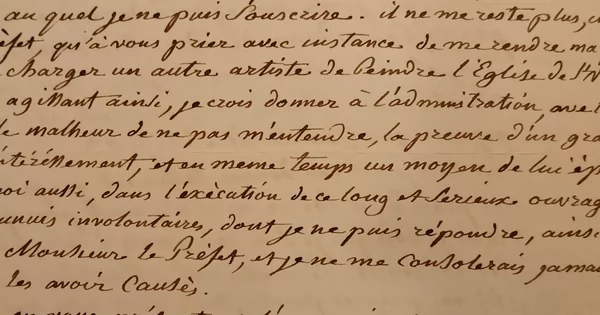 au quel je ne puis Souscrire. il ne me reste plus,
qu'à vous prier avec instance de me rendre ma
charger un autre artiste de Peindre l'Eglise de St
agissant ainsi, je crois donner à l'administration, avec
le malheur de ne pas m'entendre, la preuve d'un
et en meme temps un moyen de lui
aussi, dans l'exécution de ce long et Serieux ouvrag
involontaires, dont je ne puis répondre, ainsi
Monsieur le Préfet, et je ne me Consolerais jamai
les avoir Causés.